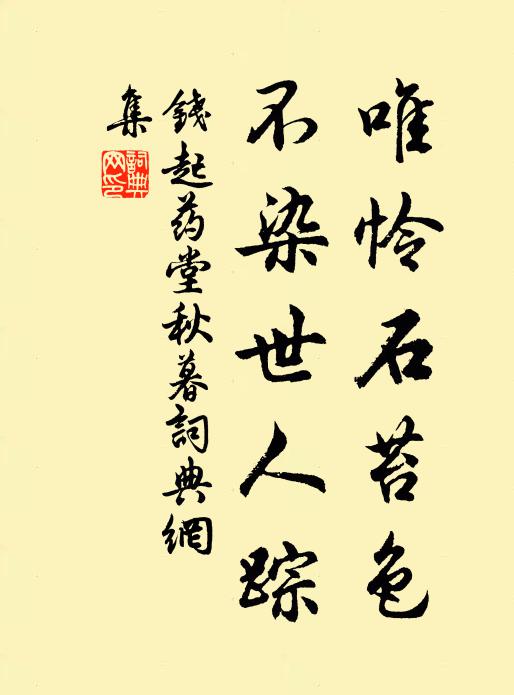 唯怜石苔色
不染世人踪
錢起药堂秋暮詞典網
集
詞典
网印